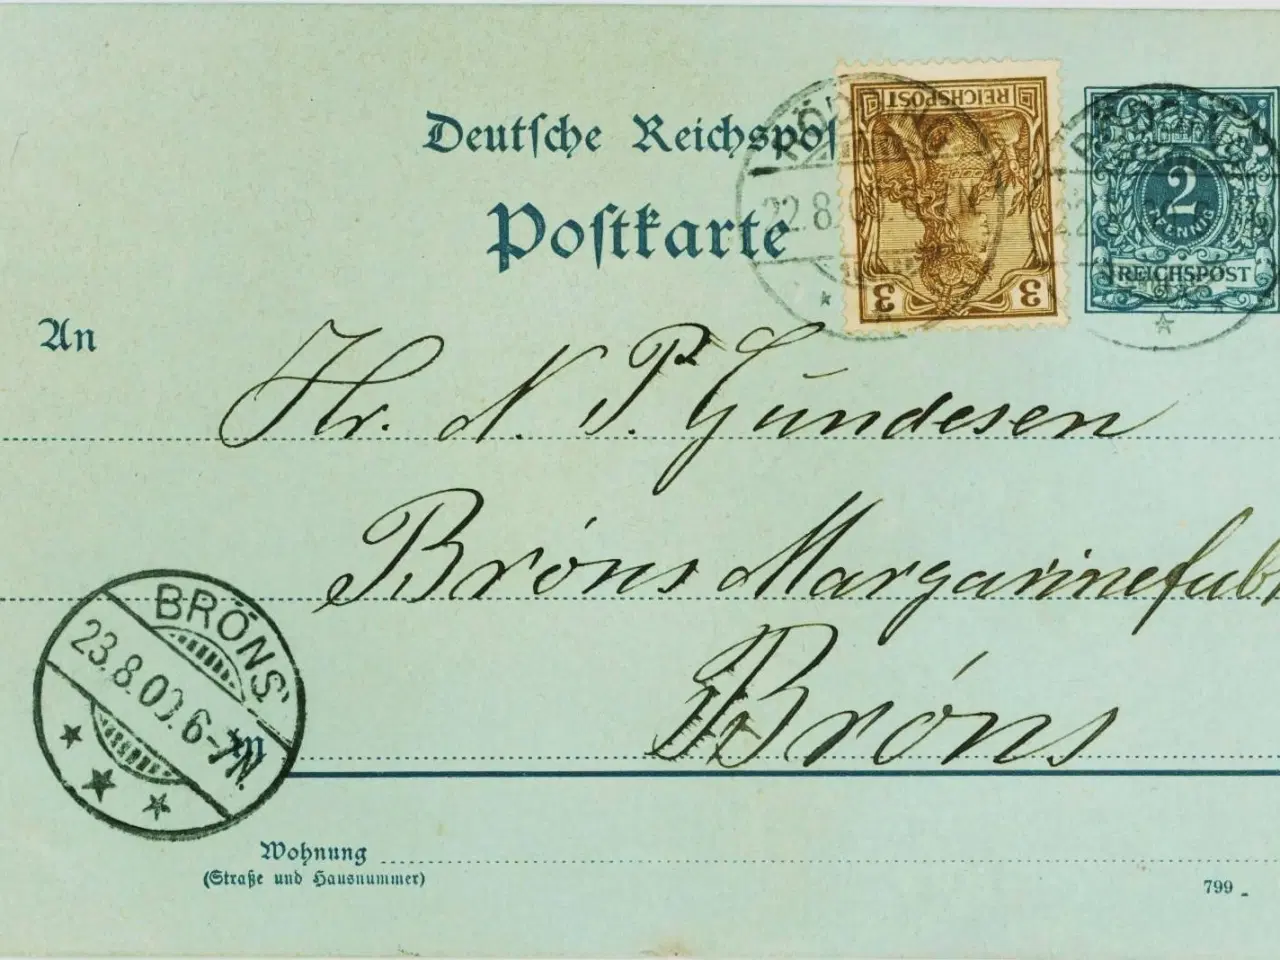 Deutsche Reichspos
Postkarte
REICHSPOST
3 3
2
PFENNIG
REICHSPOST
22.8.
An
Hr. N. P. Gundesen
Bröns Margarinefabr
Bröns
BRÖNS
23.8.00.6-7N.
in
Wohnung
(Straße und Hausnummer)
799